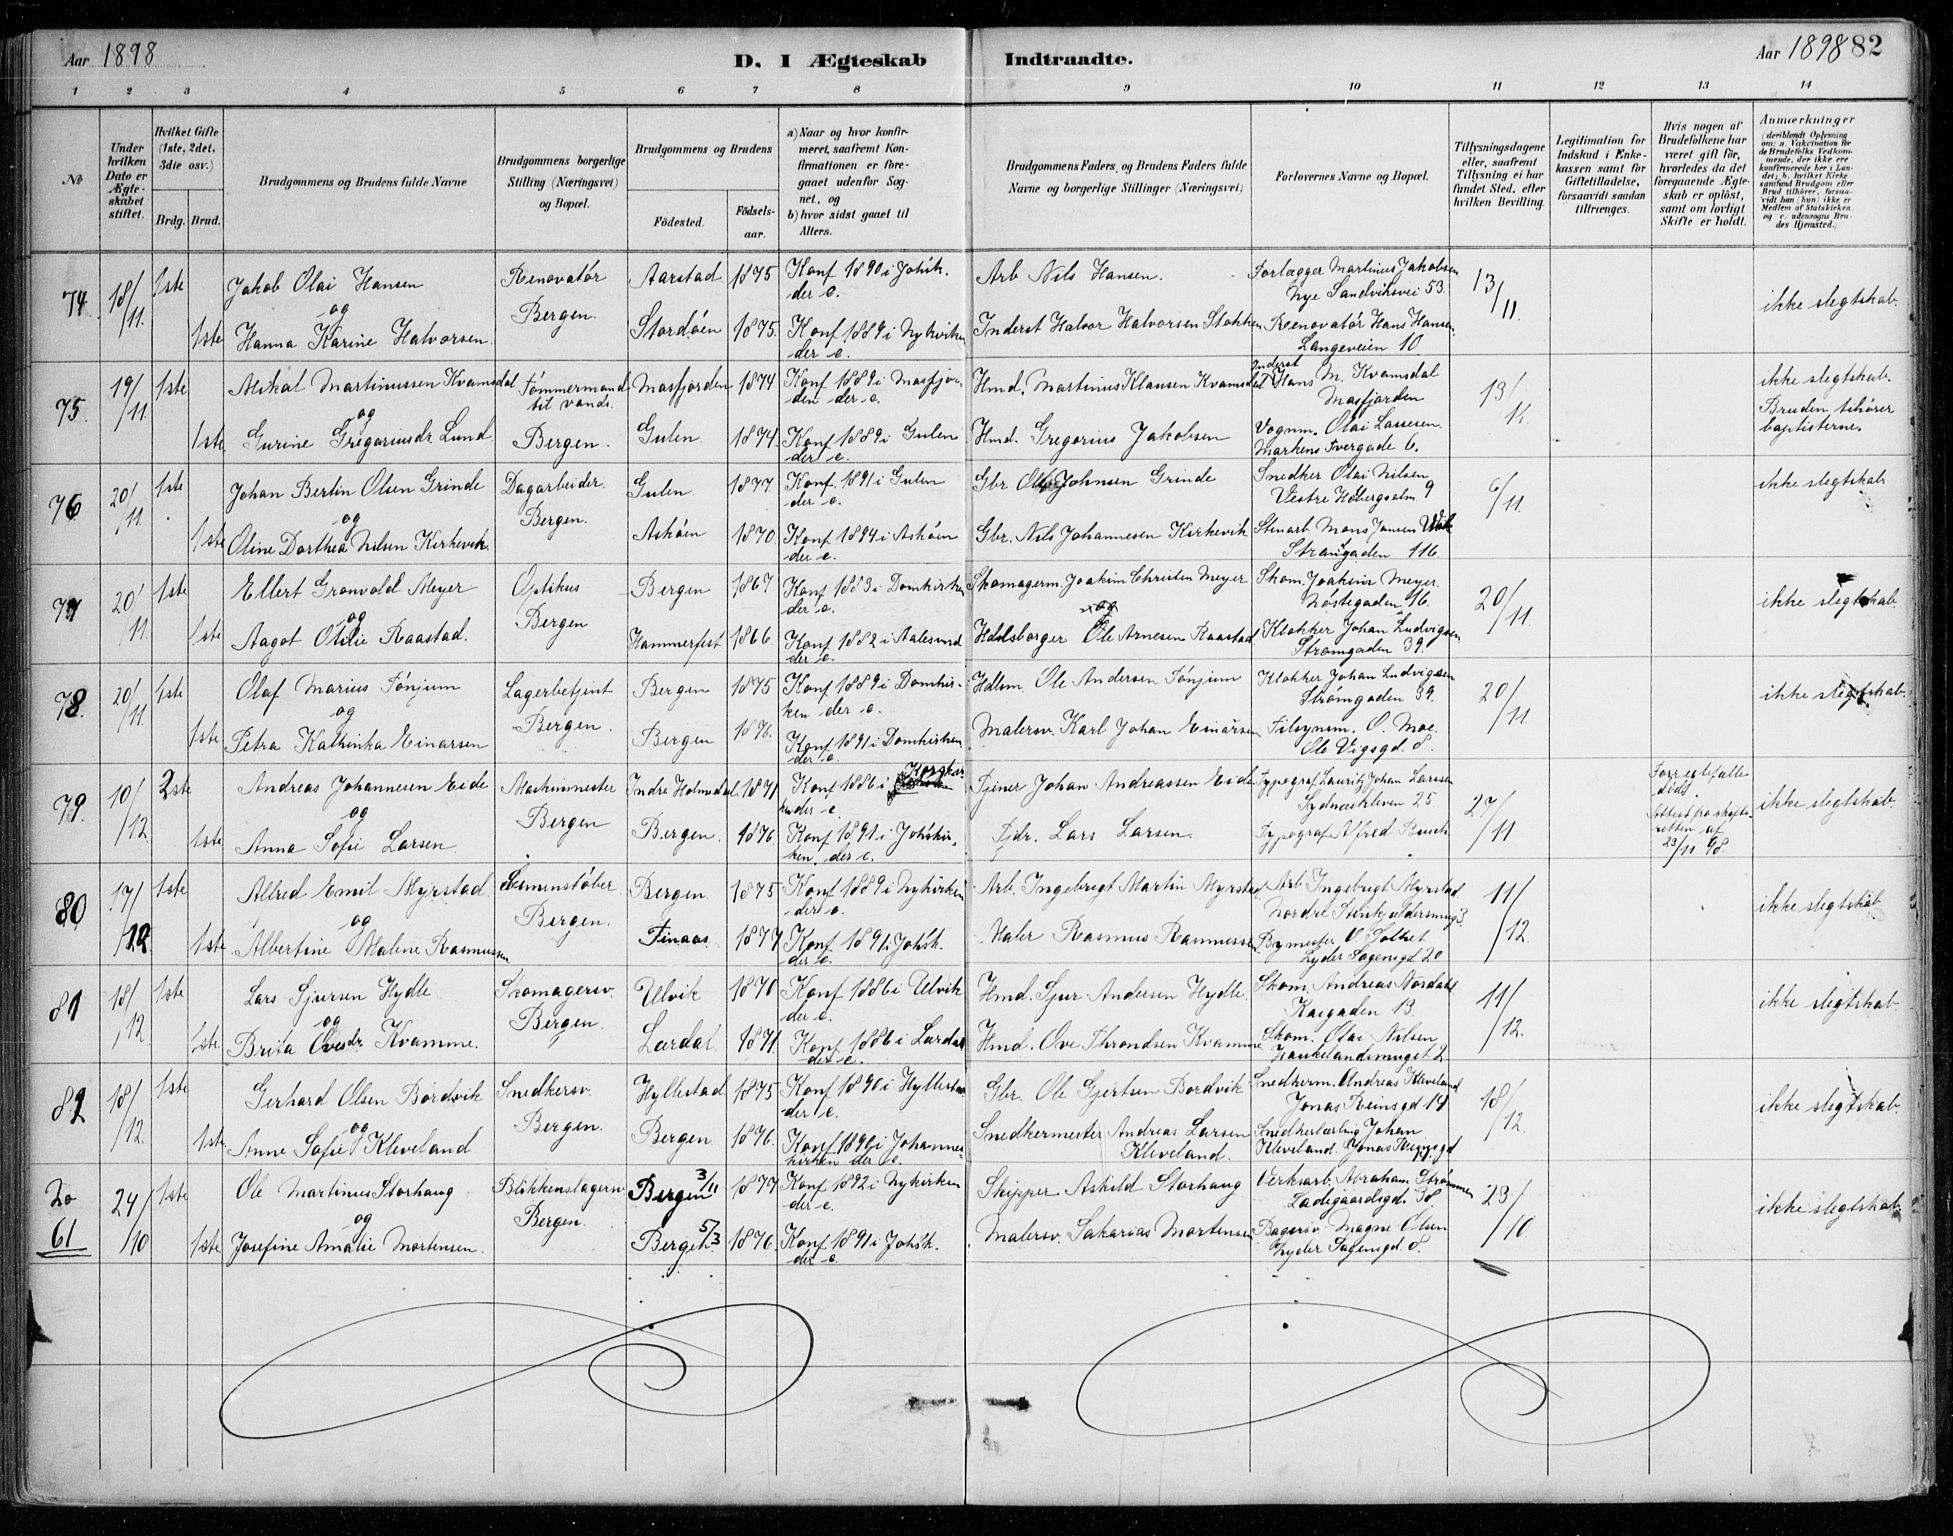 Aar 1898
D. I Ægteskab Indtraadte.
Aar 1898 82
1 2 3 4 5 6 7 8 9 10 11 12 13 14
No
Under hvilken Dato er Ægteskabet stiftet.
Hvilket Gifte (1ste, 2det, 3die osv.)
Brdg. Brud.
Brudgommens og Brudens fulde Navne
Brudgommens borgerlige Stilling (Næringsvei) og Bopæl.
Brudgommens og Brudens
Födested. Födselsaar.
a) Naar og hvor konfirmeret, saafremt Konfirmationen er foregaaet udenfor Sognet, og
b) hvor sidst gaaet til Alters.
Brudgommens Faders og Brudens Faders fulde Navne og borgerlige Stillinger (Næringsvei)
Forlovernes Navne og Bopæl.
Tillysningsdagene eller, saafremt Tillysning ei har fundet Sted, efter hvilken Bevilling.
Legitimation for Indskud i Enkekassen samt for Giftetilladelse, forsaavidt saadan tiltrænges.
Hvis nogen af Brudefolkene har været gift før, hvorledes da det foregaaende Ægteskab er opløst, samt om lovligt Skifte er holdt.
Anmærkninger
(deriblandt Oplysning om: a. Vakcination for de Brudefolks Vedkommende, der ikke ere konfirmerede her i Landet; b. hvilket Kirkesamfund Brudgom eller Brud tilhører, forsaavidt han (hun) ikke er Medlem af Statskirken, og c. udensogns Brudes Hjemsted.)
74 18/11. 1ste Jakob Olai Hansen Renovatør Aarstad 1875 Konf 1890 i Johsk. Arb Nils Hansen. Forlægger Martinus Jakobsen 13/11.
og Bergen. der e. Nye Sandviksvei 53. ikke slegtskab.
1ste Hanna Karine Halvorsen. Stordøen 1875. Konf 1889 i Nykirken Inderst Halvor Halvorsen Stokken Renovatør Hans Hansen.
der e. Langeveien 10
75. 19/11 1ste Mikal Martinussen Kvamsdal Tømmermand Masfjorden 1874 Konf 1889 i Masfjor- Hmd. Martinus Klausen Kvamsdal Inderst Hans M. Kvamsdal 13/11. ikke slegtskab.
og til vands den der e. Masfjorden Bruden tilhører
1ste Gurine Gregoriusdr Lund Bergen. Gulen. 1874. Konf 1889 i Gulen Hmd. Gregorius Jakobsen Vognm. Olai Lassesen. baptisterne.
der e. Markens tvergade 6.
76 20/11. 1ste Johan Bertin Olsen Grinde Dagarbeider. Gulen 1877 Konf. 1891 i Gulen Gbr Ole Johnsen Grinde Snedker Olai Nilsen 6/11 ikke slegtskab
og Bergen. der e. Vestre Holbergsalm. 9
1ste Oline Dorthea Nilsen Kirkevik. Askøen 1870. Konf 1894 i Askøen Gbr. Nils Johannesen Kirkevik Stenarb. Mons Jansen
der e. Strangaden 116.
77 20/11. 1ste Ellert Grønvold Meyer Optikus Bergen 1867 Konf 1883 i Domkirken Skomagerm. Joakim Christen Meyer Skom. Joakim Meyer. 20/11.
og Bergen der e. og Nøstegaden 16. ikke slegtskab.
1ste Aagot Otilie Raastad. Hammerfest 1866. Konf 1882 i Aalesund Hdlsborger Ole Arnesen Raastad Klokker Johan Ludvigsen
der e. Strømgaden 39.
78. 20/11. 1ste Olaf Marius Tønjum Lagerbetjent Bergen 1875 Konf 1889 i Domkir- Hdlsm. Ole Andersen Tønjum Klokker Johan Ludvigsen 20/11
og Bergen. ken der e. Strømgaden 39. ikke slegtskab.
1ste Petra Kathinka Einarsen Bergen 1876. Konf 1891 i Domkirken Malersv. Karl Johan Einarsen Tilsynsm. O. Moe.
der e. Ole Vigsgd. 8.
79. 10/12. 2ste Andreas Johannesen Eide Maskinmester Indre Holmedal 1871 Konf 1886 i Korskir- Tjener Johan Andreassen Eide Typograf Lauritz Johan Larssen 27/11 Forr egtefælle
og Bergen ken der e. Sydneskleven 25 død. ikke slegtskab
1ste Anna Sofie Larsen. Bergen. 1876. Konf 1891 i Johskir- Fdr. Lars Larsen. Typograf Alfred Buch Attest fra skifte-
ken der e. retten af 23/11 98.
80 17/12 1ste Alfred Emil Myrstad. Bergen 1875 Konf 1889 i Nykirken Arb. Ingebrigt Martin Myrstad Arb Ingebrigt Myrstad 11/12.
og Bergen. der e. Nordre 3 ikke slegtskab
1ste Albertine Malene Rasmussen Finaas. 1877 Konf. 1891 i Johsk. Maler Rasmus Rasmussen
der e. Lyder Sagensgd 20
81 18/12. 1ste Lars Sjursen Hydle Skomagersv. Ulvik 1870 Konf 1886 i Ulvik Hmd. Sjur Andersen Hydle. Skom. Andreas Nordahl 11/12.
og Bergen. der e. Kaigaden 13. ikke slegtskab.
1ste Brita Ovesdr. Kvamme. Lærdal. 1871. Konf 1886 i Lærdal Hmd. Ove Throndsen Kvamme Skom. Olai Nilsen
der e. Haukelandsmuget 2
82 18/12. 1ste Gerhard Olsen Bordvik Snedkersv. Hyllestad 1875 Konf 1890 i Hyllestad Gbr. Ole Gjertsen Bordvik Snedkerm. Andreas Kleveland 18/12.
og Bergen. der e. Jonas Reinsgd 14 ikke slegtskab.
1ste Anne Sofie Kleveland Bergen 1876. Konf 1890 i Johannes- Snedkermester Andreas Larsen Snedkerlærling Johan
kirken der e. Kleveland. Kleveland. Jonas Reinsgd
No 61 24/10 1ste Ole Martinus Storhaug Blikkenslagersv. Bergen 3/11 1877 Konf 1892 i Nykirken Skipper Askild Storhaug Verksarb. Abraham Strømmen 23/10
og Bergen. der e. Ladegaardsgd. 38. ikke slegtskab.
1ste Josefine Amalie Mortensen. Bergen 5/3 1876. Konf 1891 i Johsk. Malersv. Sakarias Mortensen Bagersv. Magne Olsen
der e. Lyder Sagensgd. 8.